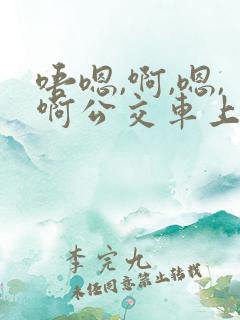 唔嗯,啊,嗯,
啊公交車上
李完九
未经同意禁止转载